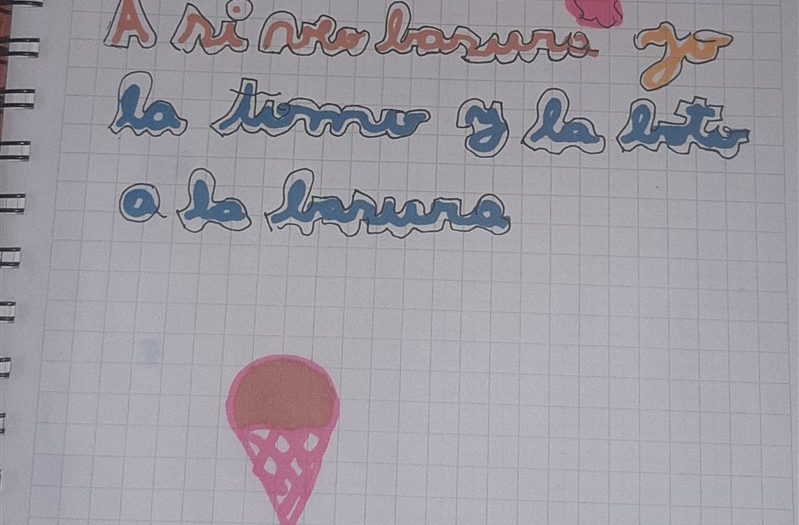 A si veo basura yo
la tomo y la boto
a la basura